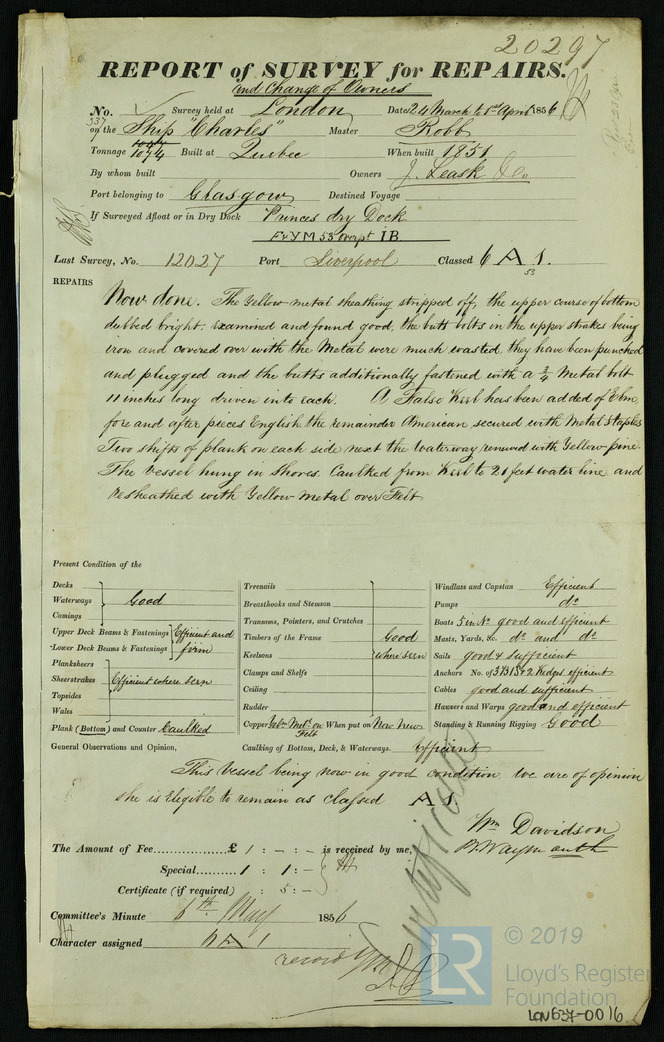 20297
REPORT of SURVEY for REPAIRS.
and Change of Owners
No. Survey held at London Date 24 March to 1st April 1856
337
on the Ship "Charles" Master Robb
Tonnage 1074 Built at Quebec When built 1851
By whom built Owners J. Leask & Co
Port belonging to Glasgow Destined Voyage
If Surveyed Afloat or in Dry Dock Princes dry Dock
F&YM 53 over pt IB
Last Survey, No. 12027 Port Liverpool Classed 6 A 1.
53
REPAIRS
Now done. The Yellow metal sheathing stripped off, the upper course of bottom
dubbed bright. Examined and found good, the butt bolts in the upper strakes being
iron and covered over with the Metal were much wasted, they have been punched
and plugged and the butts additionally fastened with a 3/4 Metal bolt
11 inches long driven into each. A False Keel has been added of Elm
fore and after pieces English the remainder American secured with Metal Staples
Two shifts of plank on each side next the Waterway renewed with Yellow pine.
The Vessel hung in Shores. Caulked from Keel to 21 feet water line and
resheathed with Yellow Metal over Felt
Present Condition of the
Decks
Waterways Good
Comings
Upper Deck Beams & Fastenings Efficient and
Lower Deck Beams & Fastenings firm
Planksheers
Sheerstrakes Efficient where seen
Topsides
Wales
Plank (Bottom) and Counter Caulked
Treenails
Breasthooks and Stemson
Transoms, Pointers, and Crutches
Timbers of the Frame Good
Keelsons where seen
Clamps and Shelfs
Ceiling
Rudder
Copper Yelw Metl on When put on Now New
Felt
Windlass and Capstan Efficient
Pumps do
Boats 5 in No good and efficient
Masts, Yards, &c. do and do
Sails good & sufficient
Anchors No. of 3 B 1 S & 2 Kedges efficient
Cables good and sufficient
Hawsers and Warps good and efficient
Standing & Running Rigging Good
General Observations and Opinion, Caulking of Bottom, Deck, & Waterways. Efficient
This Vessel being now in good condition we are of opinion
she is Eligible to remain as classed A 1.
Wm Davidson
The Amount of Fee £ 1 : - : - is received by me,
Special 1 : 1 : -
Certificate (if required) : 5 : -
Certificate
Committee's Minute 6th May 1856
Character assigned 6 A 1
record
LR
© 2019
Lloyd's Register
Foundation
LON637-0016